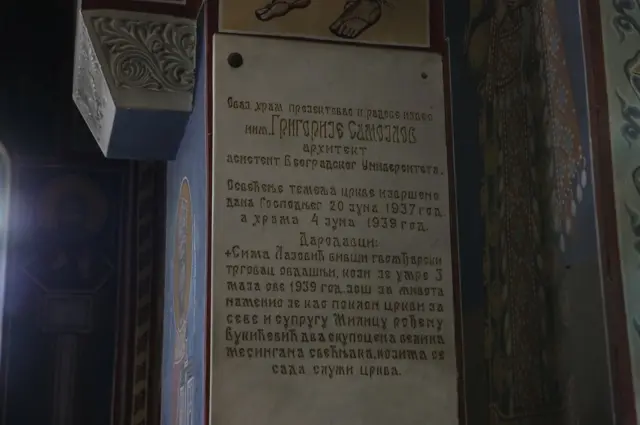 Овај храм пројектовао и радове извео
инж. Григорије Самојлов
архитект
асистент Београдског Универзитета.
Освећење темеља цркве извршено
дана Господњег 20 јуна 1937 год.
а храма 4 јуна 1939 год.
Дародавци:
+Сима Лазовић бивши гвожђарски
трговац овдашњи, који је умре 3
маја ове 1939 год. још за живота
наменио је као поклон цркви за
себе и супругу Милицу рођену
Вукићевић два скупоцена велика
месингана свећњака, којима се
сада служи црква.